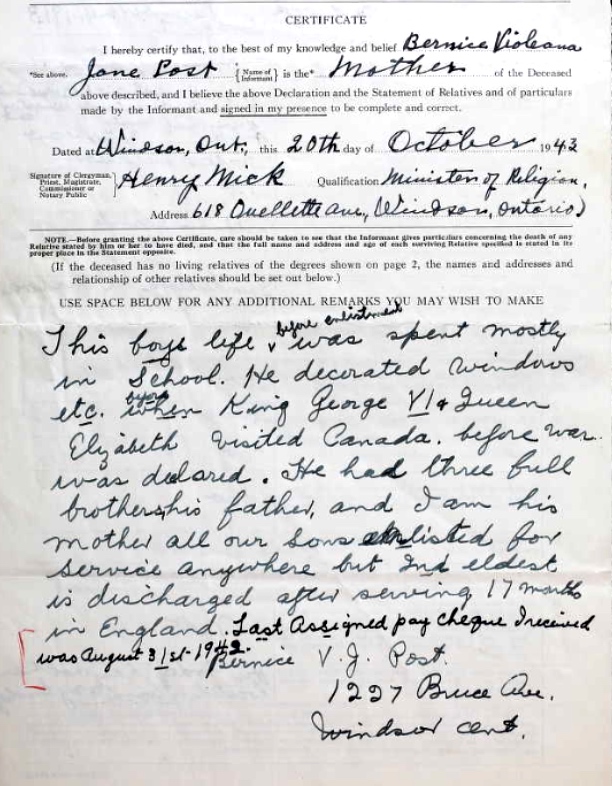 CERTIFICATE
I hereby certify that, to the best of my knowledge and belief Bernice Violeana
*See above. Jane Post {Name of Informant} is the* Mother of the Deceased
above described, and I believe the above Declaration and the Statement of Relatives and of particulars
made by the Informant and signed in my presence to be complete and correct.
Dated at Windsor, Ont., this 20th day of October 1943
Signature of Clergyman, Priest, Magistrate, Commissioner or Notary Public } Henry Mick Qualification Minister of Religion,
Address 618 Ouellette Ave, Windsor, Ontario
NOTE.—Before granting the above Certificate, care should be taken to see that the Informant gives particulars concerning the death of any
Relative stated by him or her to have died, and that the full name and address and age of each surviving Relative specified is stated in its
proper place in the Statement opposite.
(If the deceased has no living relatives of the degrees shown on page 2, the names and addresses and
relationship of other relatives should be set out below.)
USE SPACE BELOW FOR ANY ADDITIONAL REMARKS YOU MAY WISH TO MAKE
before enlistment
This boys life was spent mostly
in School. He decorated windows
etc. when King George VI & Queen
Elizabeth visited Canada. before war
was delared. He had three full
brothers, his father, and I am his
mother all our sons enlisted for
service anywhere but 2nd eldest
is discharged after serving 17 months
in England. Last Assigned pay cheque I received
was August 31st - 1942.
Bernice V. J. Post.
1227 Bruce Ave.
Windsor Ont.